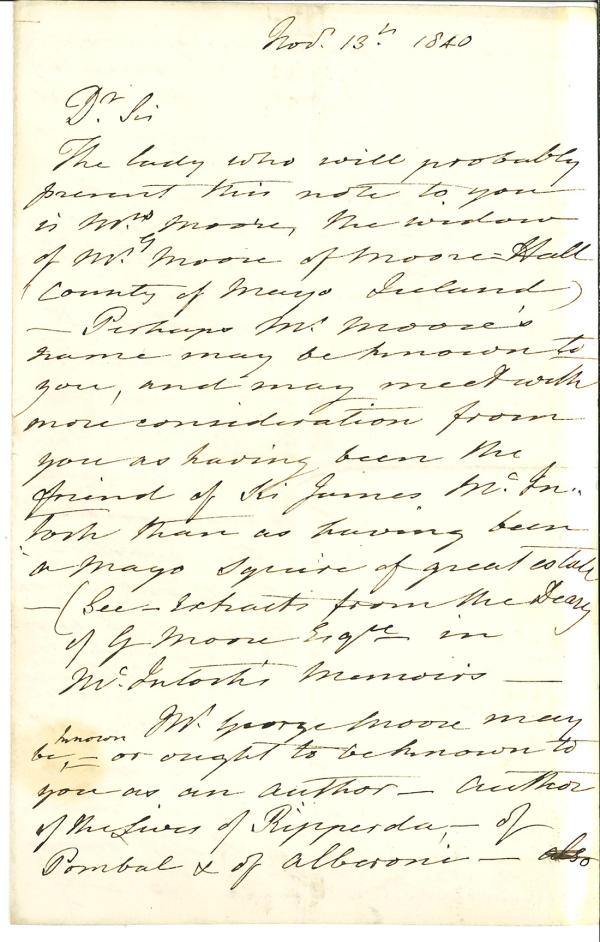 Nov. 13th 1840
Dr Sir
The lady who will probably
present this note to you
is Mrs Moore, the widow
of Mr G Moore of Moore-Hall
(County of Mayo Ireland)
— Perhaps Mr Moore's
name may be known to
you, and may meet with
more consideration from
you as having been the
friend of Sir James McIn-
tosh than as having been
a Mayo Squire of great estate
— (See – Extracts from the Deary
of G Moore Esqre in
McIntosh's Memoirs —
Mr George Moore may
be known, – or ought to be known to
you as an author – author
of the Lives of Ripperda, – of
Pombal & of Alberoni – also